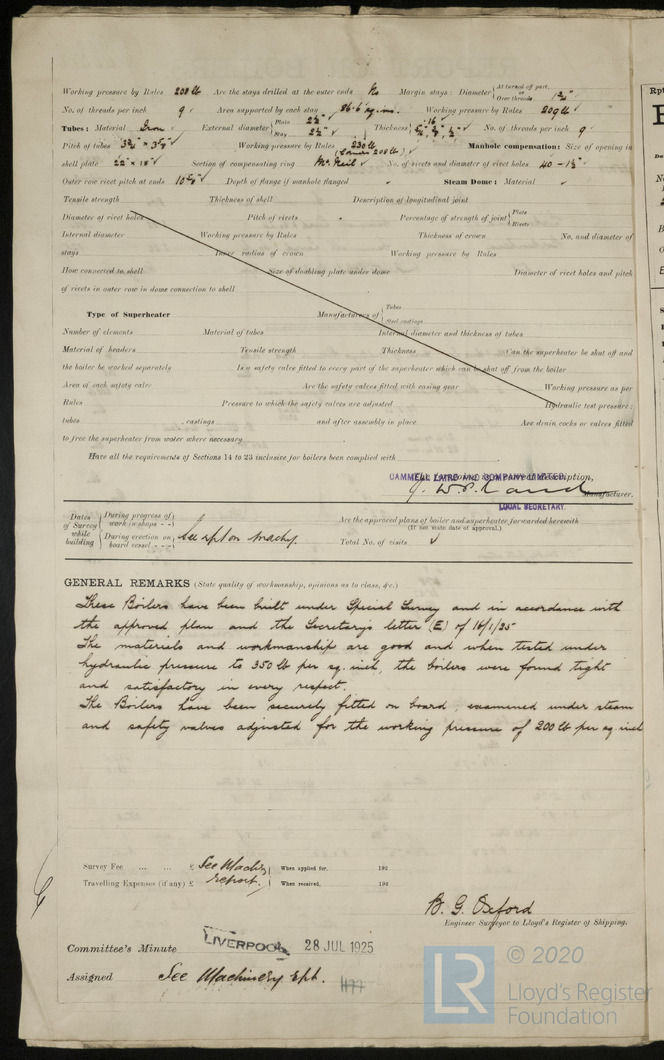 Working pressure by Rules 208 lb Are the stays drilled at the outer ends No Margin stays: Diameter { At turned off part, or Over threads 1 3/4"
No. of threads per inch 9 Area supported by each stay 86.6 sq. ins. Working pressure by Rules 209 lb
Tubes: Material Iron External diameter { Plain 2 1/2" Stay 2 1/2" } Thickness { No. of threads per inch 9
Pitch of tubes Working pressure by Rules 230 lb (208 lb) Manhole compensation: Size of opening in
shell plate 22" x 18" Section of compensating ring McNeil No. of rivets and diameter of rivet holes 40 - 1 1/2"
Outer row rivet pitch at ends Depth of flange if manhole flanged Steam Dome: Material
Tensile strength Thickness of shell Description of longitudinal joint
Diameter of rivet holes Pitch of rivets Percentage of strength of joint { Plate Rivets
Internal diameter Working pressure by Rules Thickness of crown No. and diameter of
stays Inner radius of crown Working pressure by Rules
How connected to shell Size of doubling plate under dome Diameter of rivet holes and pitch
of rivets in outer row in dome connection to shell
Type of Superheater Manufacturers of { Tubes Steel castings
Number of elements Material of tubes Internal diameter and thickness of tubes
Material of headers Tensile strength Thickness Can the superheater be shut off and
the boiler be worked separately Is a safety valve fitted to every part of the superheater which can be shut off from the boiler
Area of each safety valve Are the safety valves fitted with easing gear Working pressure as per
Rules Pressure to which the safety valves are adjusted Hydraulic test pressure:
tubes , castings and after assembly in place Are drain cocks or valves fitted
to free the superheater from water where necessary
Have all the requirements of Sections 14 to 23 inclusive for boilers been complied with
The foregoing is a correct description,
CAMMELL LAIRD AND COMPANY LIMITED,
Manufacturer.
LOCAL SECRETARY.
Dates of Survey while building { During progress of work in shops - - } { During erection on board vessel - - - } See rpt on Machy.
Are the approved plans of boiler and superheater forwarded herewith
(If not state date of approval.)
Total No. of visits
GENERAL REMARKS (State quality of workmanship, opinions as to class, &c.)
These Boilers have been built under Special Survey and in accordance with
the approved plan and the Secretary's letter (E) of 16/1/25
The materials and workmanship are good and when tested under
hydraulic pressure to 350 lb per sq. inch, the boilers were found tight
and satisfactory in every respect.
The Boilers have been securely fitted on board, examined under steam
and safety valves adjusted for the working pressure of 200 lb per sq. inch
Survey Fee ... ... £ See Machy When applied for, 192
Travelling Expenses (if any) £ report. When received, 192
B. G. Oxford
Engineer Surveyor to Lloyd's Register of Shipping.
Committee's Minute LIVERPOOL 28 JUL 1925
Assigned See Machinery rpt.
© 2020
Lloyd's Register
Foundation
LR